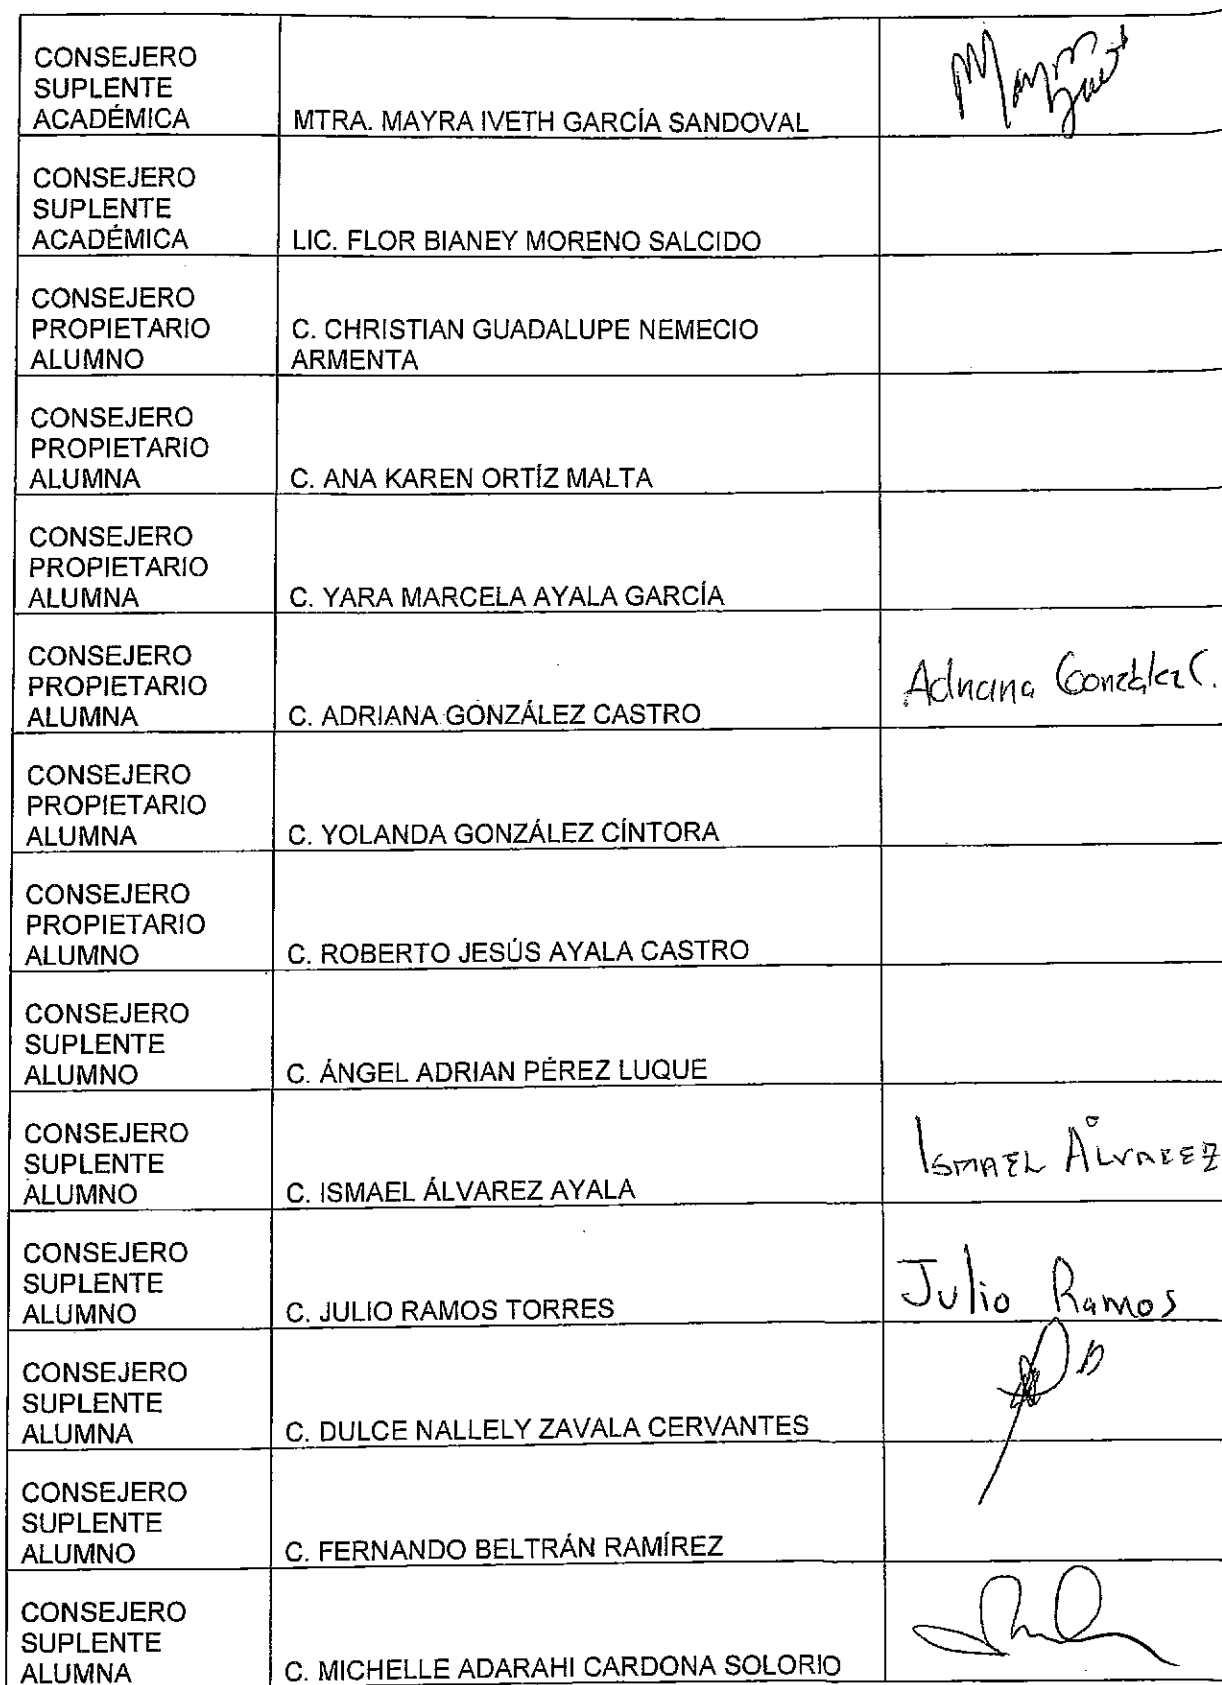 CONSEJERO
SUPLENTE
ACADÉMICA
MTRA. MAYRA IVETH GARCÍA SANDOVAL
CONSEJERO
SUPLENTE
ACADÉMICA
LIC. FLOR BIANEY MORENO SALCIDO
CONSEJERO
PROPIETARIO
ALUMNO
C. CHRISTIAN GUADALUPE NEMECIO
ARMENTA
CONSEJERO
PROPIETARIO
ALUMNA
C. ANA KAREN ORTÍZ MALTA
CONSEJERO
PROPIETARIO
ALUMNA
C. YARA MARCELA AYALA GARCÍA
CONSEJERO
PROPIETARIO
ALUMNA
C. ADRIANA GONZÁLEZ CASTRO
Adriana González C.
CONSEJERO
PROPIETARIO
ALUMNA
C. YOLANDA GONZÁLEZ CÍNTORA
CONSEJERO
PROPIETARIO
ALUMNO
C. ROBERTO JESÚS AYALA CASTRO
CONSEJERO
SUPLENTE
ALUMNO
C. ÁNGEL ADRIAN PÉREZ LUQUE
CONSEJERO
SUPLENTE
ALUMNO
C. ISMAEL ÁLVAREZ AYALA
ISMAEL ÁLVAREZ
CONSEJERO
SUPLENTE
ALUMNO
C. JULIO RAMOS TORRES
Julio Ramos
CONSEJERO
SUPLENTE
ALUMNA
C. DULCE NALLELY ZAVALA CERVANTES
CONSEJERO
SUPLENTE
ALUMNO
C. FERNANDO BELTRÁN RAMÍREZ
CONSEJERO
SUPLENTE
ALUMNA
C. MICHELLE ADARAHI CARDONA SOLORIO